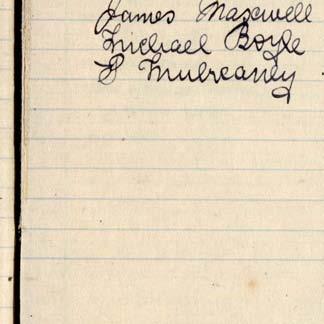 James Maxwell
Michael Boyle
P Mulreaney